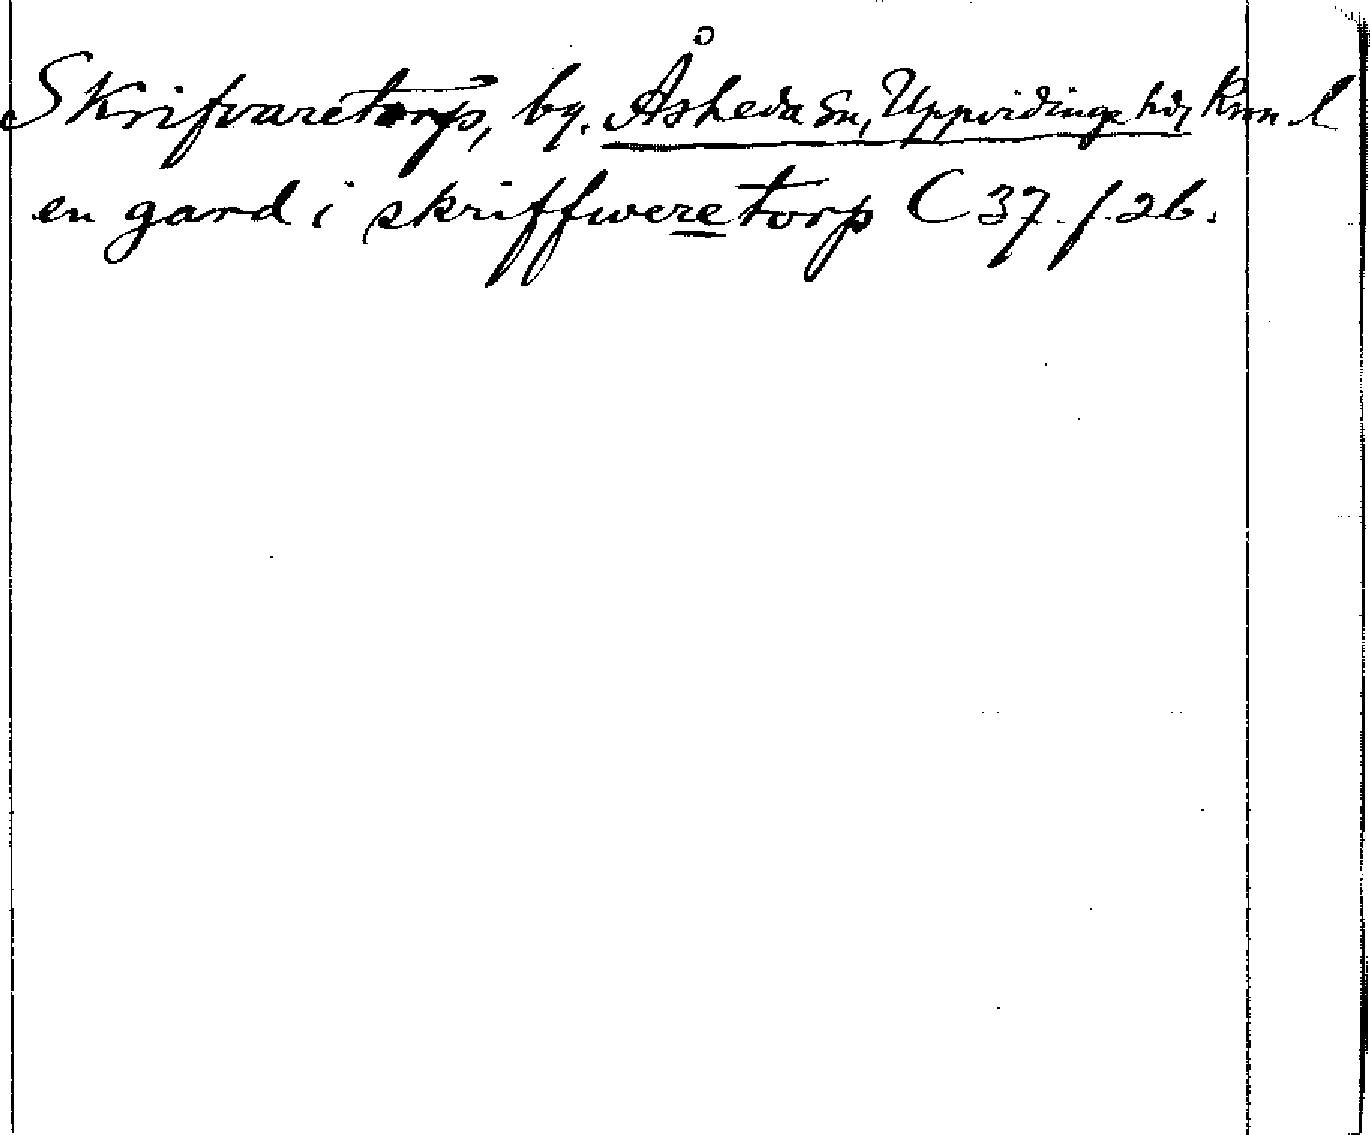 Skrifvaretorp, by. Åsheda Sn, Uppvidinge hd, Kron. l
en gard i skriffweretorp C 37. f. 26.